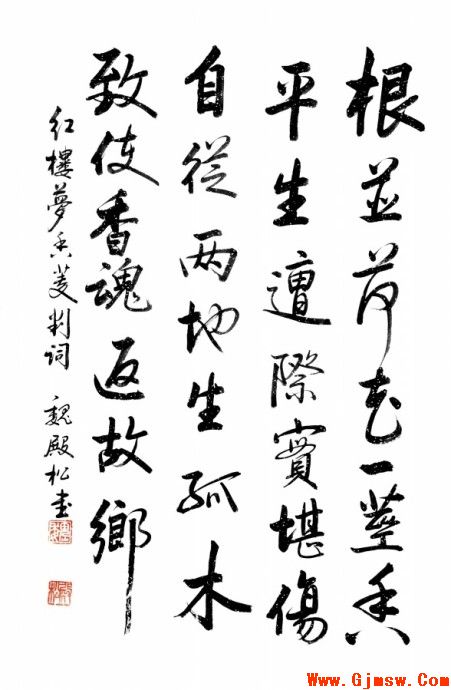 根並荷花一莖香
平生遭際實堪傷
自從两地生孤木
致使香魂返故鄉
红樓夢香菱判词 魏殿松書
www.Gjmsw.Com